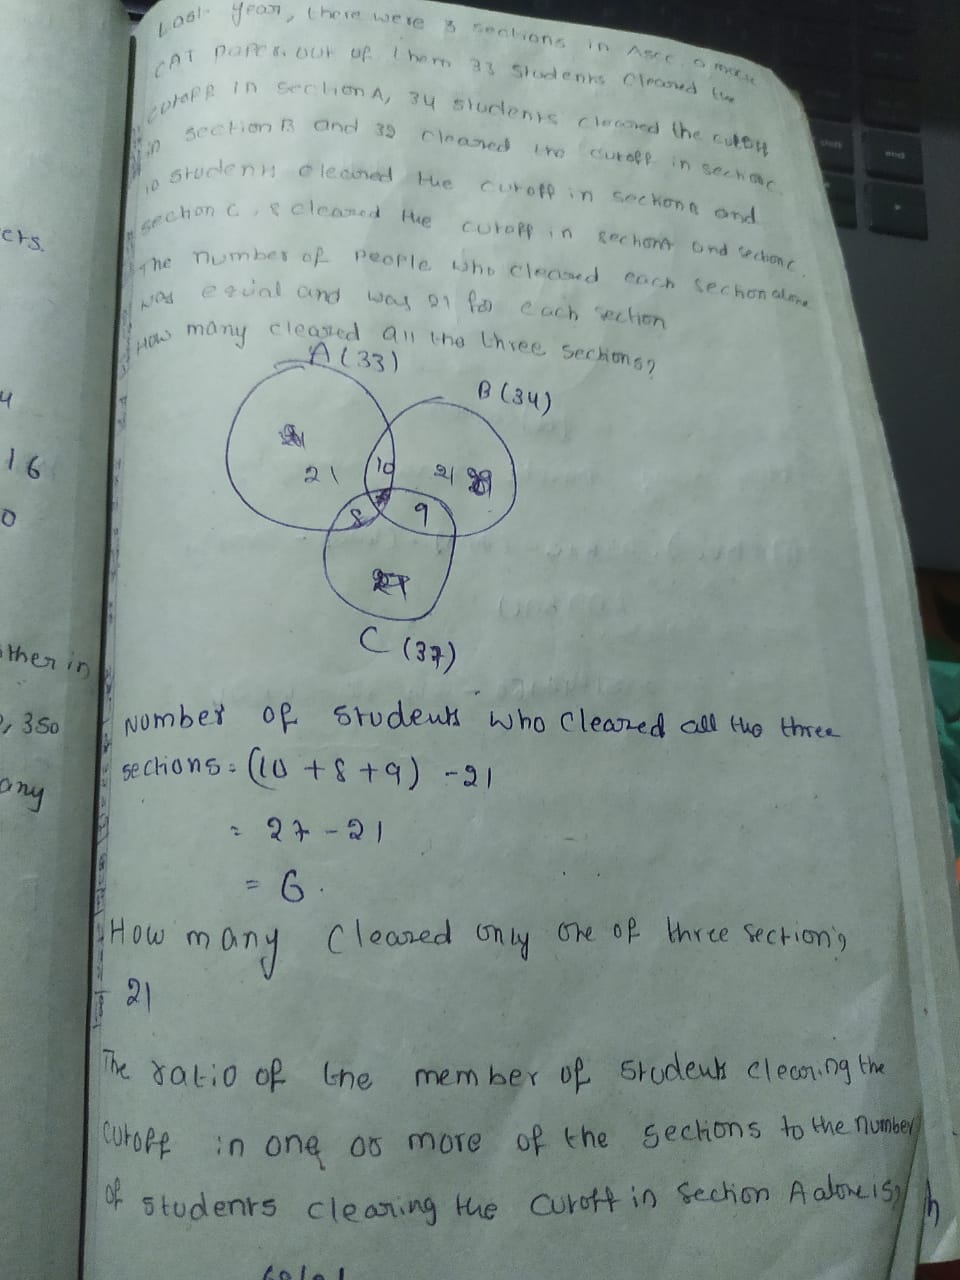 Last year, there were 3 sections in Ascc, a mock
CAT paper. out of them 33 students cleared the
cutoff in section A, 34 students cleared the cutoff
in section B and 32 cleared the cutoff in section C.
10 students cleared the cutoff in section and
section C, 8 cleared the cutoff in section and section C.
The number of people who cleared each section alone
was equal and was 21 for each section
How many cleared all the three sections?
A (33)
B (34)
21 10 21
8 9
27
C (37)
Number of students who cleared all the three
sections = (10 + 8 + 9) - 21
= 27 - 21
= 6.
How many cleared only one of three section?
21
The ratio of the member of students clearing the
cutoff in one or more of the sections to the number
of students clearing the cutoff in section A alone is?
ers.
4
16
0
ther in
, 350
any